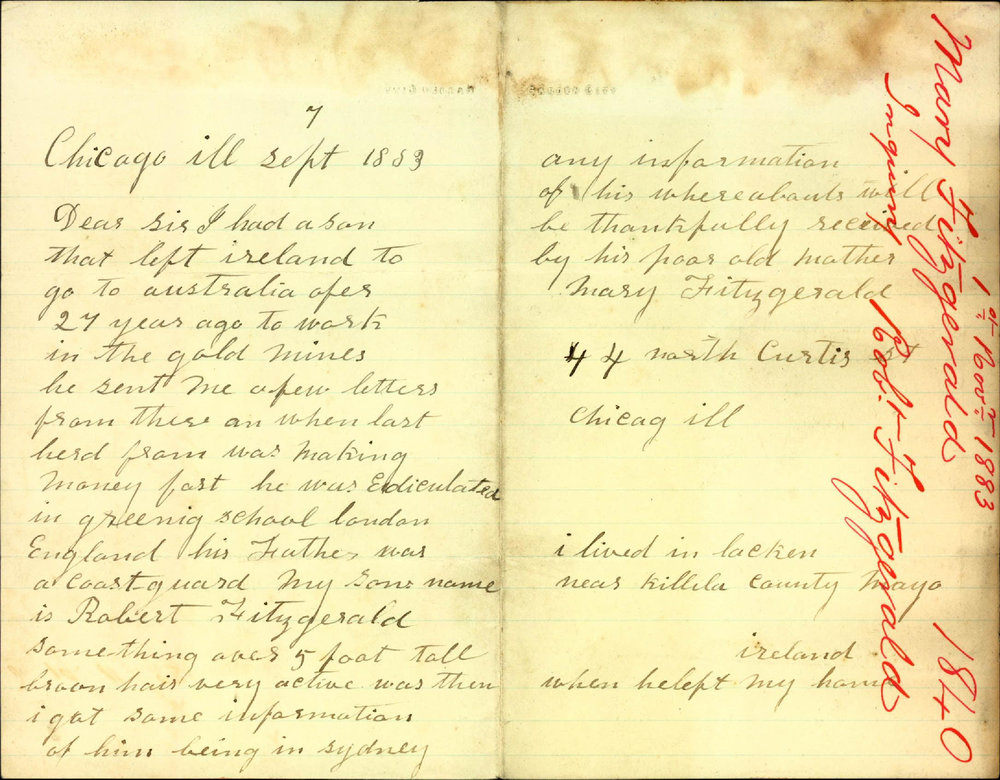 7
Chicago ill sept 1883
Dear sir I had a son
that left ireland to
go to australia over
27 years ago to work
in the gold mines
he sent me a few letters
from there an when last
herd from was making
money fast he was Ediculated
in greenig school london
England his Father was
a coast-guard My Sons name
is Robert Fitzgerald
something over 5 foot tall
broon hair very active was then
i got some information
of him being in sydney
any information
of his whereabouts will
be thankfully received
by his poor old mother
Mary Fitzgerald
44 north Curtis st
Chicag ill
i lived in lacken
near killela county Mayo
ireland
when he left my home
Mary Fitzgerald 1840
1st Novr 1883
Inquiry Robt Fitzgerald